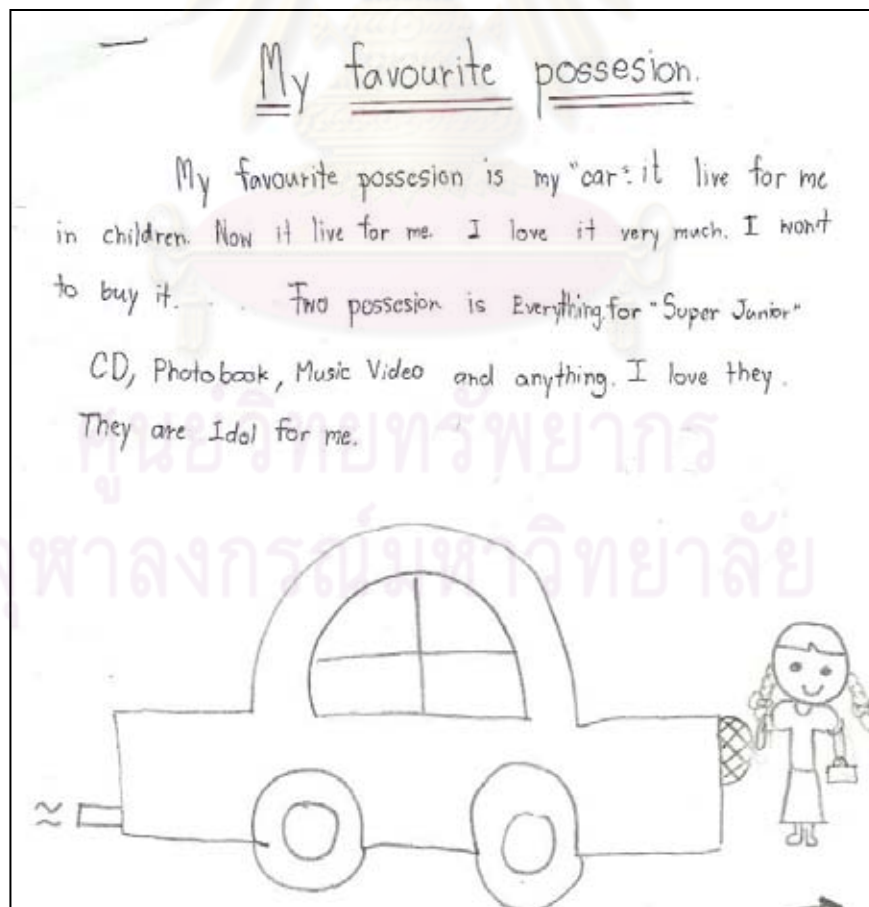 My favourite possesion.
My favourite possesion is my "car". it live for me
in children. Now it live for me. I love it very much. I won't
to buy it. . . Two possesion is Everything for "Super Junior"
CD, Photobook, Music Video and anything. I love they.
They are Idol for me.
ศูนย์วิทยทรัพยากร
จุฬาลงกรณ์มหาวิทยาลัย